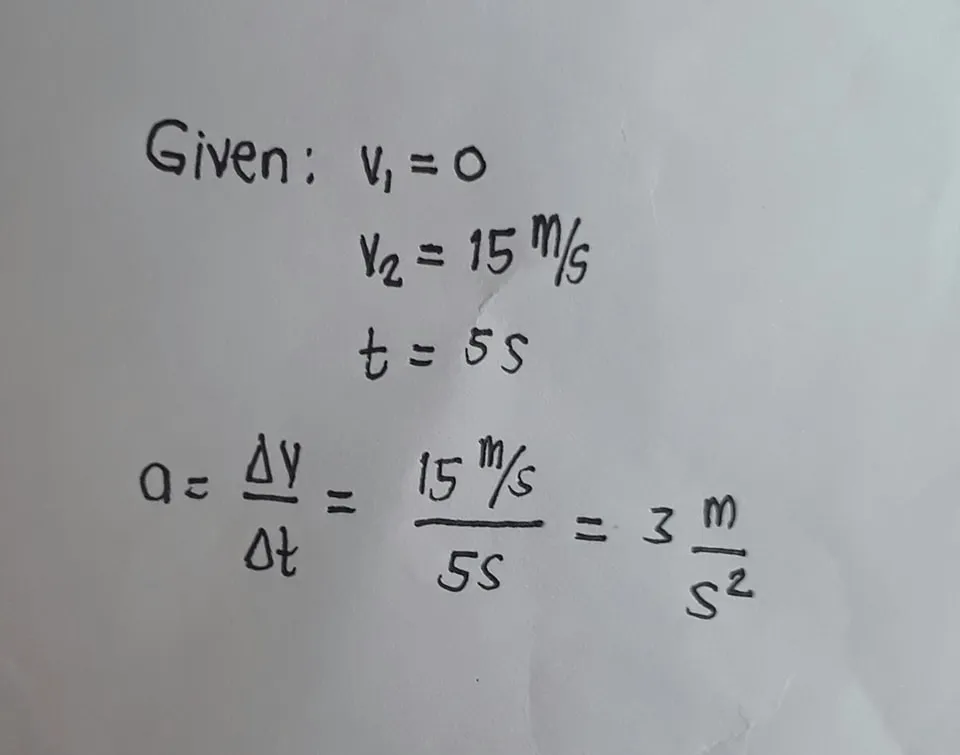 Given: v₁ = 0
v₂ = 15 m/s
t = 5 s
a = Δv/Δt = 15 m/s / 5s = 3 m/s²